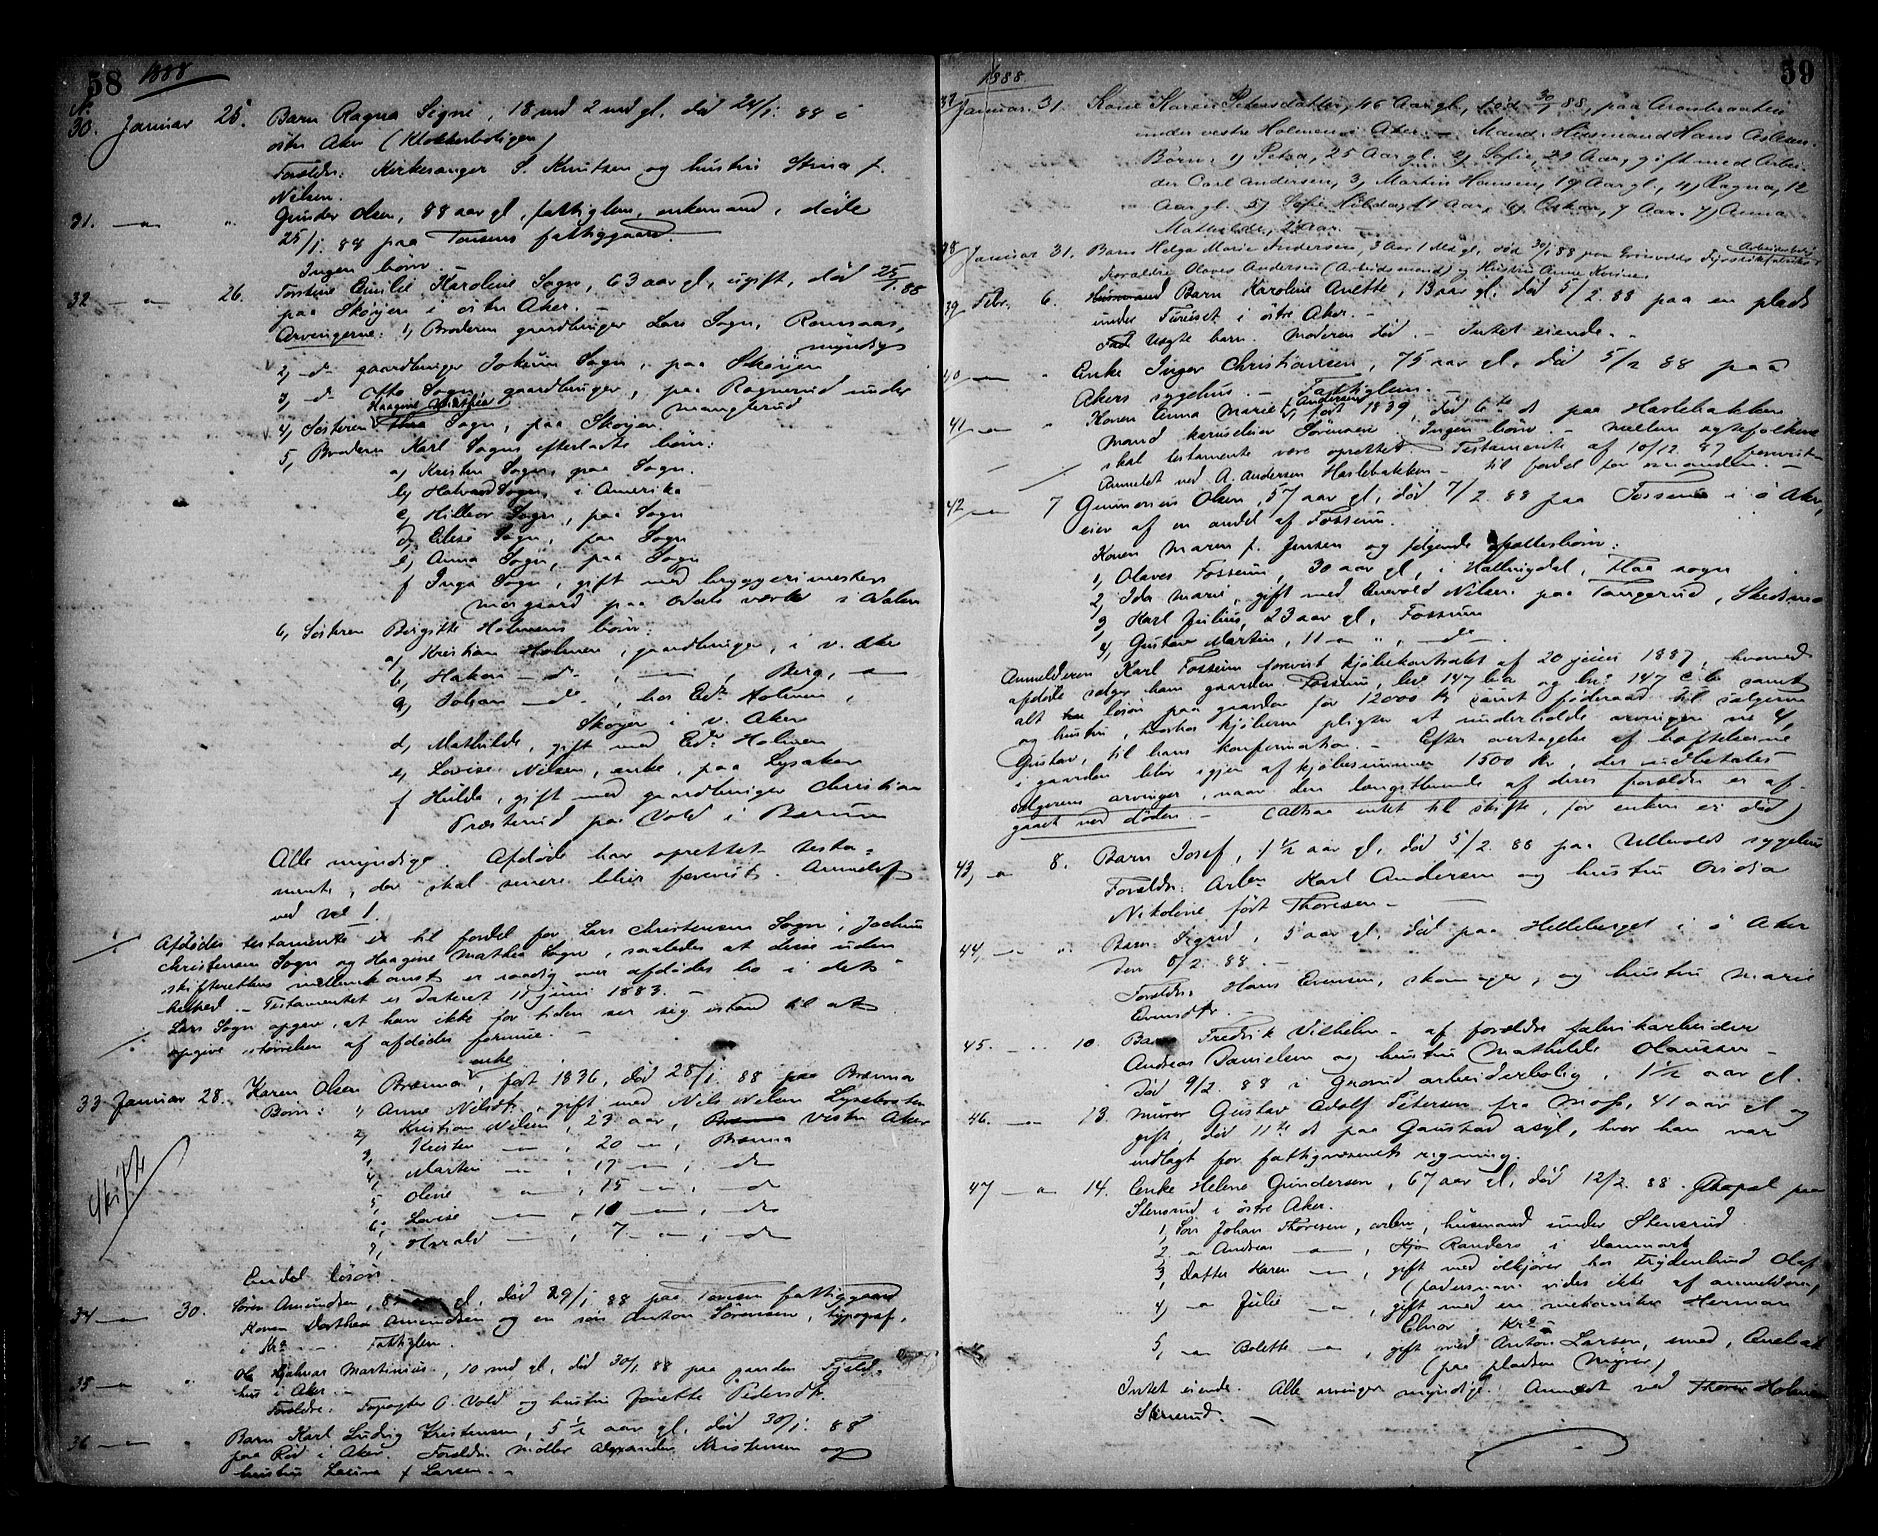 58 1888
N.
30. Januar 25. Barn Ragna Signe, 18 md 2 md gl, död 24/1. 88 i
östre Aker (Klokkerboligen)
Foreldr: Kirkesanger S. Knutsen og hustru Stina f.
Nilsen.
31. — " — " Gunder Olsen, 88 aar gl, fattiglem, enkemand, döde
25/1. 88 paa Tonsens fattiggaard.
Ingen börn. —
32 — " — 26. Emilie Karoline Sogn, 63 aar gl, ugift, död 25/1. 88
paa Skøyen i östre Aker. —
Arvingerne: 1, Broderen gaardbruger Lars Sogn, Ramsaas,
myndig
2, — d— gaardbruger Jokum Sogn, paa Skøyen
3, — d— Otto Sogn, gaardbruger, paa Ragnerud under
Manglerud
Haagine Mathea
4, Søsteren Sogn, paa Skøyen.
5, Broderen Karl Sogns efterladte börn:
a, Kristen Sogn, paa Sogn.
b, Halvard Sogn, i Amerika
c, Hilleor Sogn, paa Sogn
d, Elise Sogn, paa Sogn
e, Anna Sogn, paa Sogn
f Inga Sogn, gift med bryggerimester
paa Odals værk i Odalen
6, Søsteren Birgitte Holmens börn:
a, Kristian Holmen, gaardbruger, i v. Aker
b, Hakon — d—, — " —, Berg, — " —
c, Johan — d—, hos Edv. Holmen,
Skøyen i v. Aker
d, Mathilde, gift med Edv. Holmen
e, Lovise Nilsen, enke, paa Lysaker
f Hulda, gift med gaardbruger Christian
Præsterud paa Vold i Bærum
Alle myndige. Afdöde har oprettet testa-
mente, der skal senere blive forevist. Anmeldt
ved No 1.
Afdödes testamente er til fordel for Lars Christensen Sogn, Jochum
Christensen Sogn og Haagine Mathea Sogn, saaledes at disse uden
skifterettens mellemkomst er raadig over afdödes bo i dets
helhed. — Testamentet er dateret 11 juni 1883. —
Lars Sogn opgav, at han ikke for tiden ser sig istand til at
opgive størrelsen af afdödes formue. —
33 Januar 28. Karen Olsen Brænna, enke, föt 1836, död 28/1. 88 paa Brænna
Börn: 1, Anne Nilsdtr, gift med Nils Nilsen Lysebraaten
2, Kristian Nilsen, 23 aar, Vestre Aker
3, Kristen — " —, 20 — " —, Brænna
4, Martin — " —, 17 — " —, do
5, Oline — " —, 15 — " —, do
6, Lovise — " —, 10 — " —, do
7, Harald — " —, 7 — " —, do
Skifte
Endel lösöre.
34 — " — 30. Sören Amundsen, gl, död 29/1 88 paa Tonsen fattiggaard
Konen Dorthea Amundsen og en sön Anton Sörensen, typograf,
i Kra. — Fattiglem.
35 — " — " Ole Hjalmar Martinius, 10 md gl, död 30/1 88 paa gaarden Fjeld-
hus i Aker. —
Foreldre: Forpagter O. Vold og hustru Janette Pedersdtr.
36 — " — " Barn Karl Ludvig Kristensen, 5 1/2 aar gl, död 30/1. 88
paa Röd i Aker. Foreldr. möller Alexander Kristensen og
hustru Lovina f Larsen. —
1888. 59
37 Januar 31. Kone Karen Petersdatter, 46 Aar gl, död 30/1 88, paa Aronbraaten
under vestre Holmen i Aker. — Mand: Husmand Hans Aslesen.
Börn: 1, Petra, 25 Aar gl. 2, Sofie, 21 Aar, gift med Arbei-
der Carl Andersen, 3, Martin Hansen, 19 Aar gl, 4, Ragna, 12
Aar gl. 5, Sofie Nilsdag, 11 Aar, 6, Oskar, 7 Aar. 7, Anna
Mathilde, 2 Aar. —
38 Januar 31. Barn Helga Marie Andersen, 3 Aar 1 Md gl, död 30/1 88 paa Grönvolds Fyrstikfabriker
Arbeiderbolig
Forældre Olaves Andersen (Arbeidsmand) og Hustru Anne Karine.
39 Febr. 6. Barn Karoline Anette, 13 aar gl, död 5/2. 88 paa en plads
under Furuset i östre Aker. —
Uægte barn. Moderen död. — Intet eiende. —
40 — " — " Enke Inger Christiansen, 75 aar gl, död 5/2 88 paa
Akers sygehus. — Fattiglem. —
41 — " — " Konen Anna Marie f. Andersen föt 1839, död 6te d paa Haslebakken
Mand Sörensen. Ingen börn. — Mellem ægtefolkene
skal testamente være oprettet. Testamente af 10/12 87 forevist
Anmeldt ved A. Andersen Haslebakken — til fordel for manden. —
42 — " — 7 Gunnerius Olsen, 57 aar gl, död 7/2. 88 paa Fossum i ö Aker,
eier af en andel af Fossum.
Konen Maren f. Jensen og følgende börn:
1, Olaves Fossum, 30 aar gl, i Hallingdal, Flaa sogn
2, Ida Marie, gift med Enevold Nilsen paa Tangerud, Skedsmo
3, Karl Julius, 23 aar gl, Fossum
4, Gustav Martin, 11 — " — ", — do —
Anmelderen Karl Fossum forevist kjöbekontrakt af 20 juni 1887, hvorved
afdöde sælger ham gaarden Fossum, bno 147 b.a og bno 147 c.b. samt
alt lösöre paa gaarden for 12000 Kr samt föderaad til sælgeren
og hustru, hvorhos kjöberen pligter at underholde arvingen no 4,
Gustav, til hans konfirmation. — Efter overtagelse af hæftelserne
i gaarden blev igjen af kjöbesummen 1500 Kr, der udbetales
sælgerens arvinger, naar den længstlevende af deres forældre er af-
gaaet ved döden. — (Altsaa intet til skifte, for enken er död)
43, — " — 8. Barn Josef, 1 1/2 aar gl, död 5/2. 88 paa Ullevolds sygehus
Foreldr: Arb. Karl Andersen og hustru Ovidia
Nikoline födt Thoresen —
44, — " — " Barn Sigrid, 5 aar gl, död paa Helleberget i ö Aker
den 8/2. 88. —
Foreldr: Hans Evensen, skomager, og hustru Marie
Evensdtr. —
45. — " — 10. Barn Fredrik Vilhelm — af forældre fabrikarbeider
Andreas Danielsen og hustru Mathilde Olaussen —
död 9/2. 88 i Grorud arbeiderbolig, 1 1/2 aar gl.
46. — " — 13. Murer Gustav Adolf Petersen fra Moss, 41 aar gl og
gift, död 11te d paa Gaustad asyl, hvor han var
indlagt for fattigvæsenets regning.
47 — " — 14. Enke Helene Gundersen, 67 aar gl, död 12/2. 88. paa
Stensrud i östre Aker.
1, Sön Johan Thoresen, arb, husmand under Stensrud
2, — " Andreas — " —, Randers i Danmark
3, Datter Karen — " —, gift med ölkjörer hos Frydenlund Olaf
(fadersnavn vides ikke af anmelderen)
4, — " Julie — " —, gift med en mekaniker Herman
Elnor, Kra —
5, — " Bolette — " —, gift med Anton Larsen, smed, Enebak
(paa pladsen Myrer)
Intet eiende. Alle arvinger myndige. Anmeldt ved Holmen
Stensrud. —